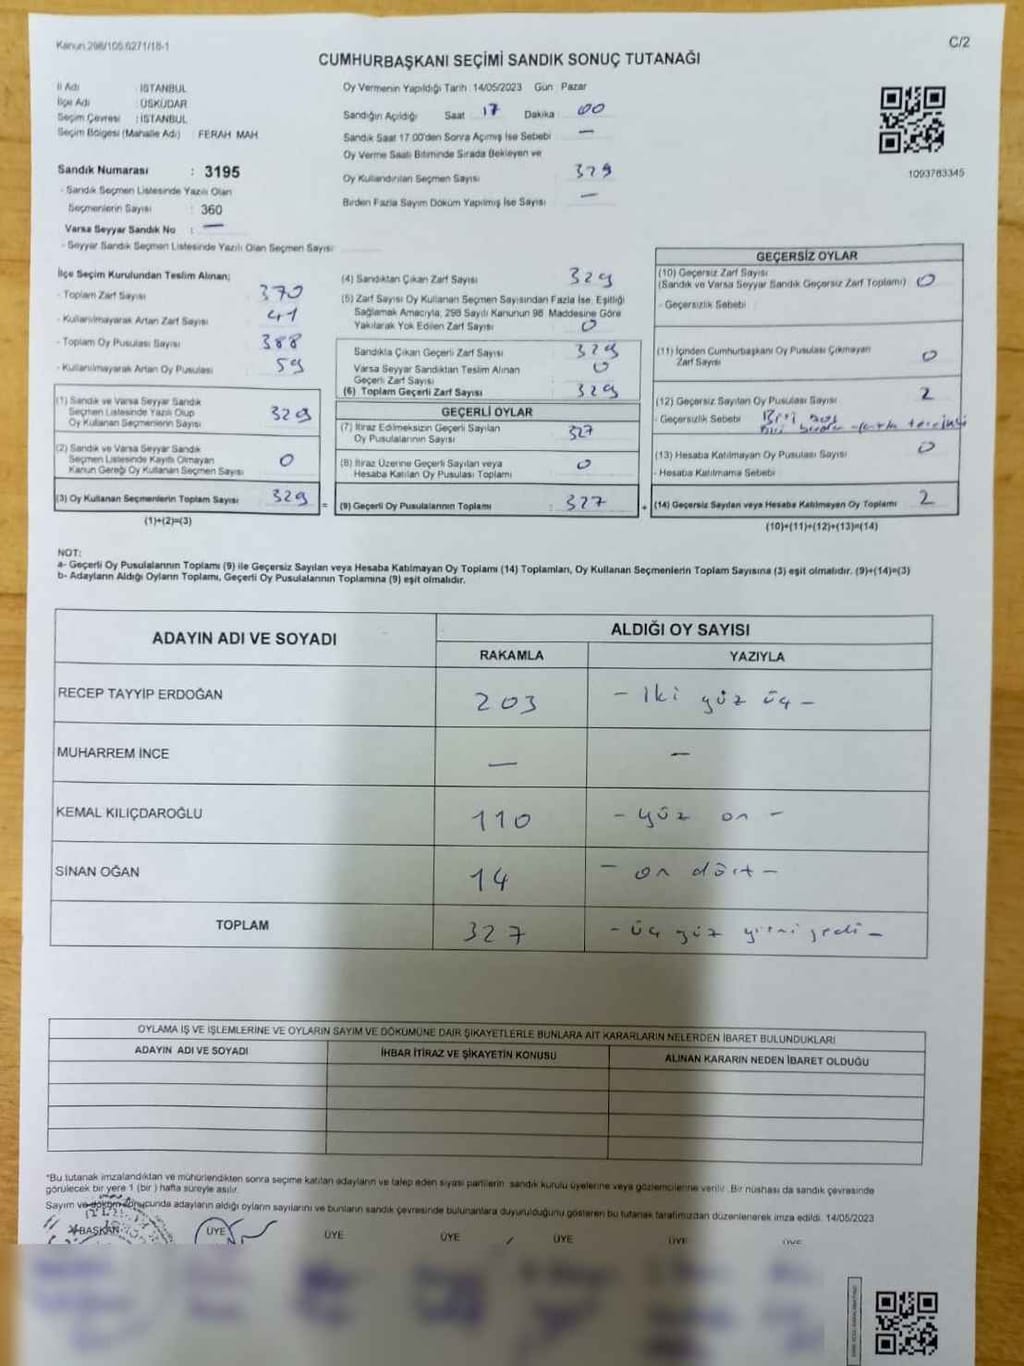 Kanun 298/105.6271/18-1
C/2
CUMHURBAŞKANI SEÇİMİ SANDIK SONUÇ TUTANAĞI
İl Adı : İSTANBUL
İlçe Adı : ÜSKÜDAR
Seçim Çevresi : İSTANBUL
Seçim Bölgesi (Mahalle Adı) : FERAH MAH
Sandık Numarası : 3195
- Sandık Seçmen Listesinde Yazılı Olan
Seçmenlerin Sayısı : 360
Varsa Seyyar Sandık No : —
- Seyyar Sandık Seçmen Listesinde Yazılı Olan Seçmen Sayısı
Oy Vermenin Yapıldığı Tarih : 14/05/2023 Gün : Pazar
Sandığın Açıldığı Saat 17 Dakika 00
Sandık Saat 17.00'den Sonra Açılmış İse Sebebi —
Oy Verme Saati Bitiminde Sırada Bekleyen ve
Oy Kullandırılan Seçmen Sayısı 329
Birden Fazla Sayım Döküm Yapılmış İse Sayısı —
1093763345
İlçe Seçim Kurulundan Teslim Alınan;
- Toplam Zarf Sayısı 370
- Kullanılmayarak Artan Zarf Sayısı 41
- Toplam Oy Pusulası Sayısı 388
- Kullanılmayarak Artan Oy Pusulası 59
(1) Sandık ve Varsa Seyyar Sandık
Seçmen Listesinde Yazılı Olup
Oy Kullanan Seçmenlerin Sayısı 329
(2) Sandık ve Varsa Seyyar Sandık
Seçmen Listesinde Kayıtlı Olmayan
Kanun Gereği Oy Kullanan Seçmen Sayısı 0
(3) Oy Kullanan Seçmenlerin Toplam Sayısı 329
(1)+(2)=(3)
(4) Sandıktan Çıkan Zarf Sayısı 329
(5) Zarf Sayısı Oy Kullanan Seçmen Sayısından Fazla İse, Eşitliği
Sağlamak Amacıyla, 298 Sayılı Kanunun 98. Maddesine Göre
Yakılarak Yok Edilen Zarf Sayısı 0
Sandıkta Çıkan Geçerli Zarf Sayısı 329
Varsa Seyyar Sandıktan Teslim Alınan
Geçerli Zarf Sayısı 0
(6) Toplam Geçerli Zarf Sayısı 329
GEÇERLİ OYLAR
(7) İtiraz Edilmeksizin Geçerli Sayılan
Oy Pusulalarının Sayısı 327
(8) İtiraz Üzerine Geçerli Sayılan veya
Hesaba Katılan Oy Pusulası Toplamı 0
= (9) Geçerli Oy Pusulalarının Toplamı : 327
GEÇERSİZ OYLAR
(10) Geçersiz Zarf Sayısı
(Sandık ve Varsa Seyyar Sandık Geçersiz Zarf Toplamı) 0
- Geçersizlik Sebebi
(11) İçinden Cumhurbaşkanı Oy Pusulası Çıkmayan
Zarf Sayısı 0
(12) Geçersiz Sayılan Oy Pusulası Sayısı 2
- Geçersizlik Sebebi Biri boş
biri birden fazla tercihli
(13) Hesaba Katılmayan Oy Pusulası Sayısı 0
- Hesaba Katılmama Sebebi
+ (14) Geçersiz Sayılan veya Hesaba Katılmayan Oy Toplamı 2
(10)+(11)+(12)+(13)=(14)
NOT:
a- Geçerli Oy Pusulalarının Toplamı (9) ile Geçersiz Sayılan veya Hesaba Katılmayan Oy Toplamı (14) Toplamları, Oy Kullanan Seçmenlerin Toplam Sayısına (3) eşit olmalıdır. (9)+(14)=(3)
b- Adayların Aldığı Oyların Toplamı, Geçerli Oy Pusulalarının Toplamına (9) eşit olmalıdır.
ADAYIN ADI VE SOYADI
ALDIĞI OY SAYISI
RAKAMLA YAZIYLA
RECEP TAYYİP ERDOĞAN 203 - İki yüz üç -
MUHARREM İNCE — —
KEMAL KILIÇDAROĞLU 110 - yüz on -
SİNAN OĞAN 14 - on dört -
TOPLAM 327 - üç yüz yirmi yedi -
OYLAMA İŞ VE İŞLEMLERİNE VE OYLARIN SAYIM VE DÖKÜMÜNE DAİR ŞİKAYETLERLE BUNLARA AİT KARARLARIN NELERDEN İBARET BULUNDUKLARI
ADAYIN ADI VE SOYADI İHBAR İTİRAZ VE ŞİKAYETİN KONUSU ALINAN KARARIN NEDEN İBARET OLDUĞU
*Bu tutanak imzalandıktan ve mühürlendikten sonra seçime katılan adayların ve talep eden siyasi partilerin sandık kurulu üyelerine veya gözlemcilerine verilir. Bir nüshası da sandık çevresinde
görülecek bir yere 1 (bir) hafta süreyle asılır.
Sayım ve döküm sonucunda adayların aldığı oyların sayılarını ve bunların sandık çevresinde bulunanlara duyurulduğunu gösteren bu tutanak tarafımızdan düzenlenerek imza edildi. 14/05/2023
BAŞKAN ÜYE ÜYE ÜYE ÜYE ÜYE ÜYE